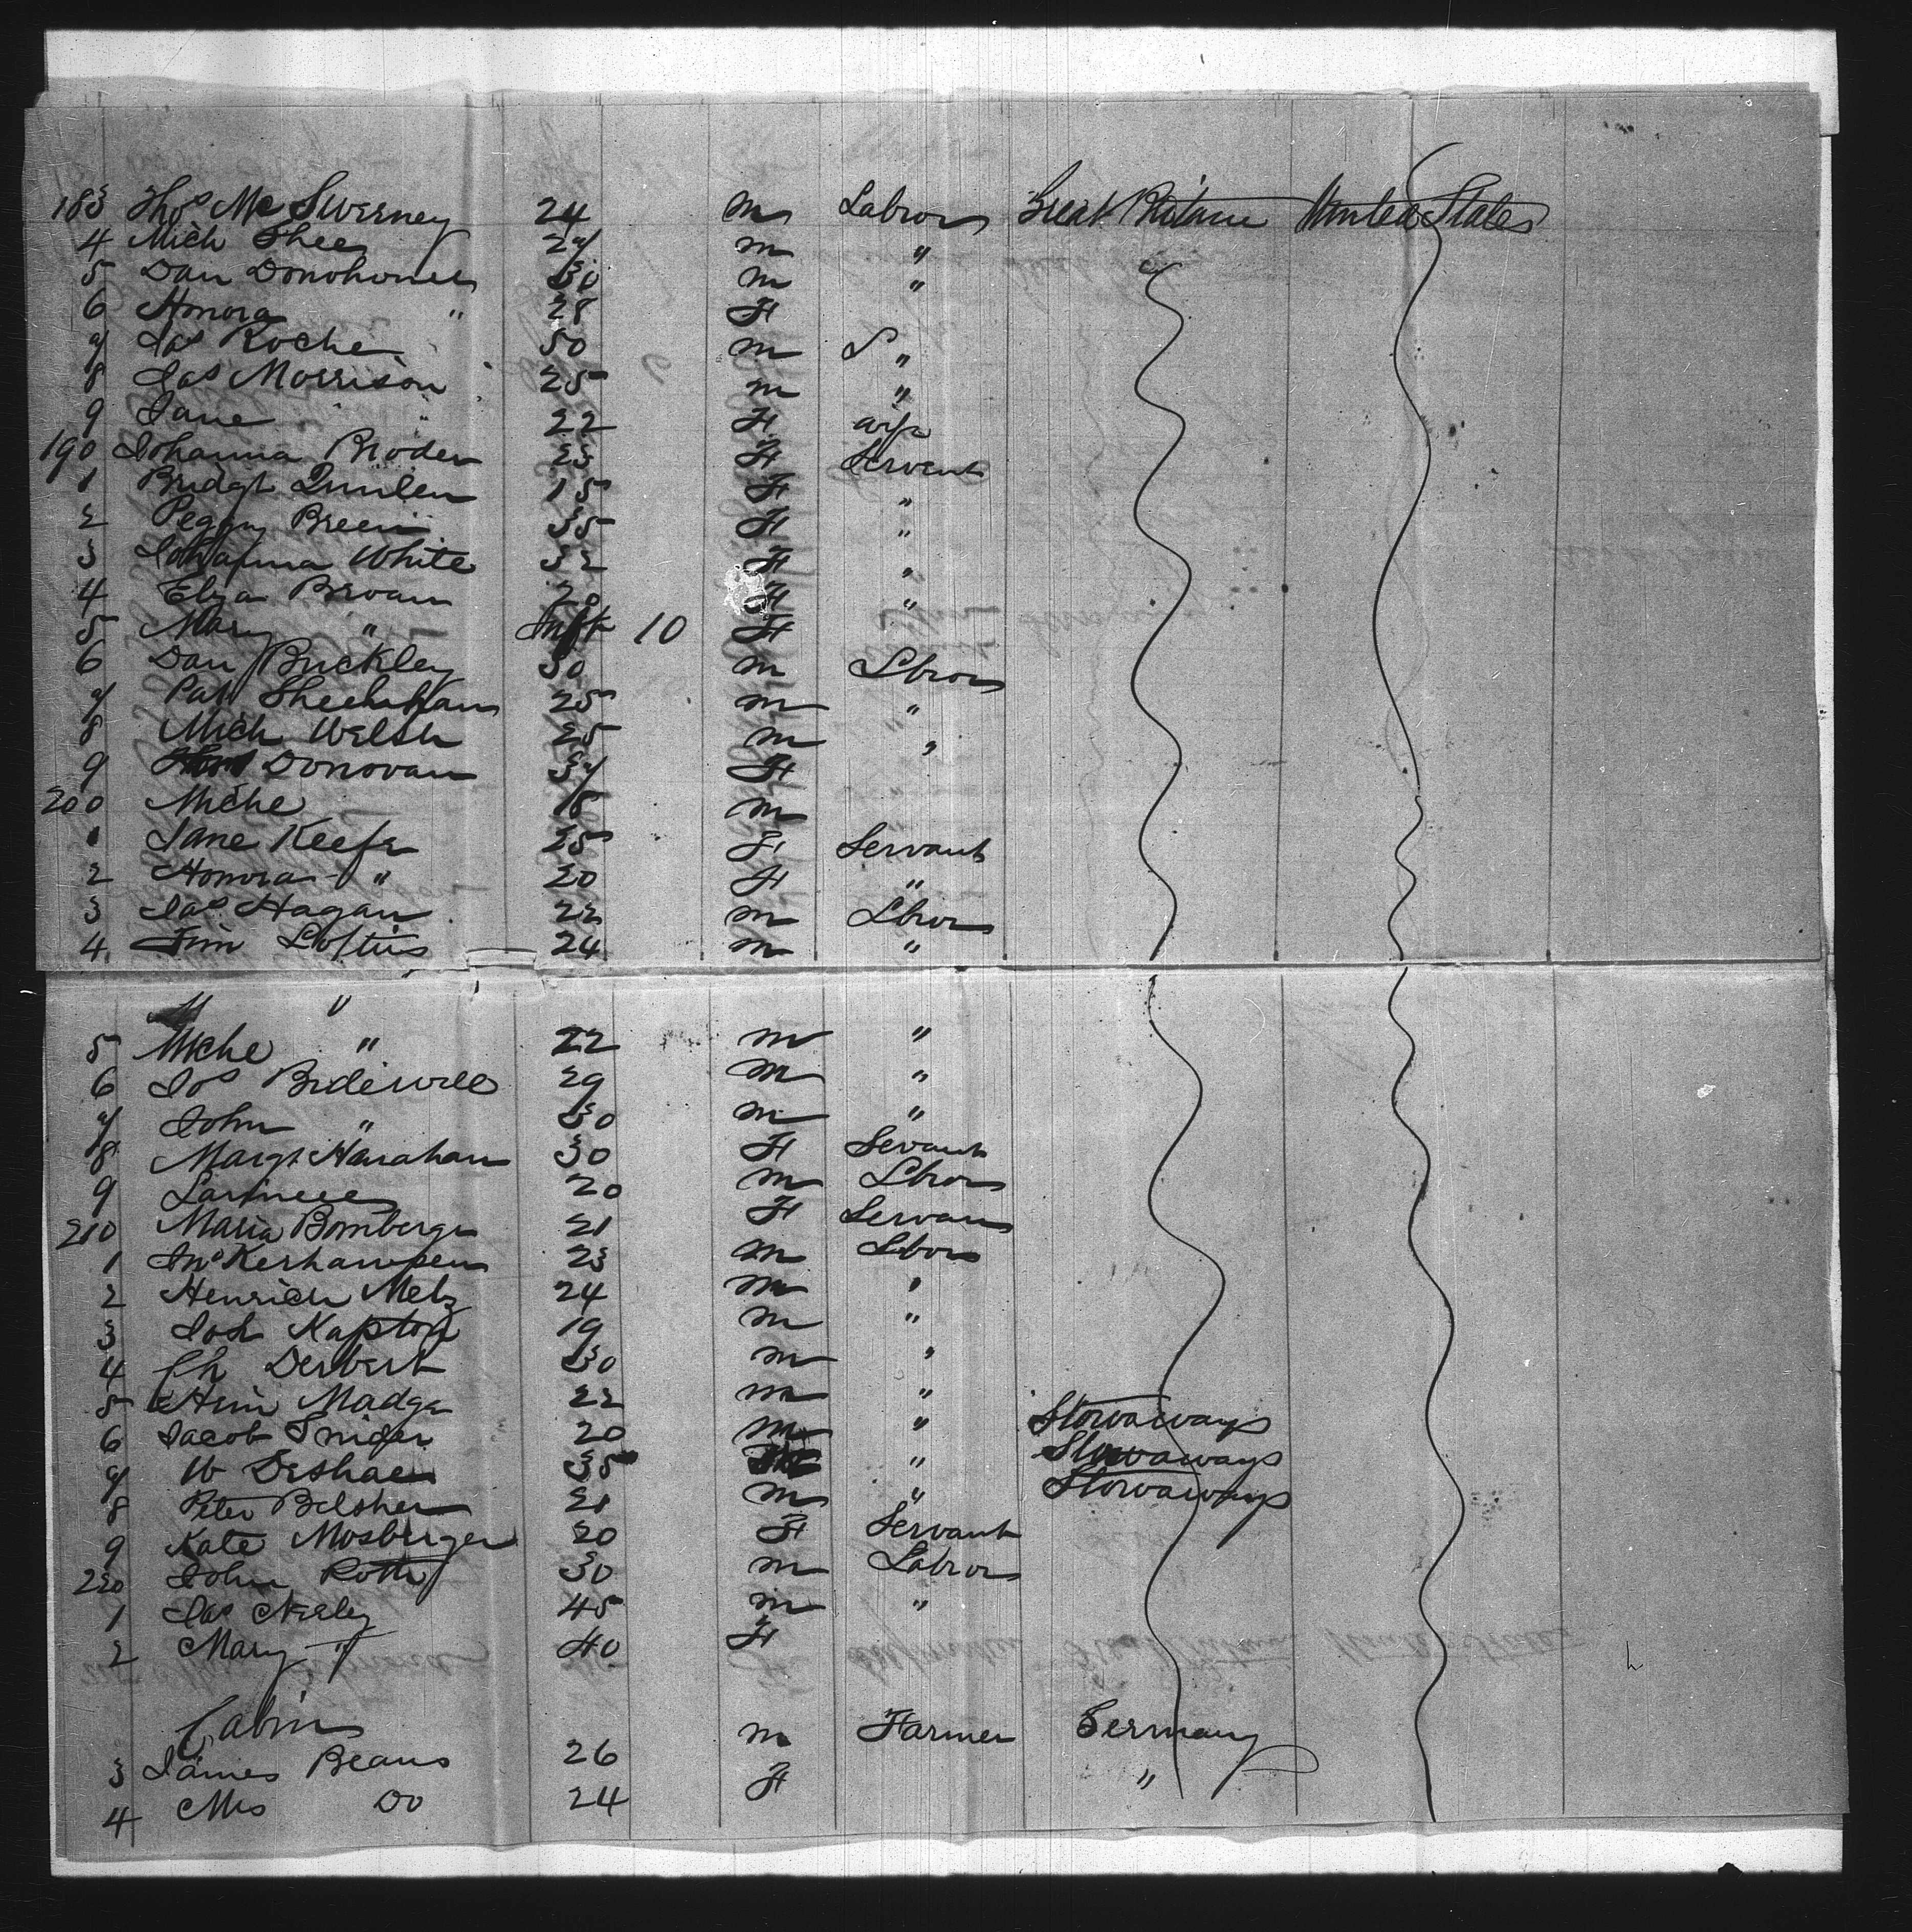 183 Thos McSwerney 24 m Labror Great Britain United States
4 Mich Shee 27 m "
5 Dan Donohoue 30 m "
6 Honora " 28 F
7 Jas Roche 50 m L "
8 Jas Morrison 25 m "
9 Jane " 22 F wife
190 Johanna Broder 23 F Servant
1 Bridgt Quinlen 15 F "
2 Peggy Breen 35 F "
3 Johanna White 32 F "
4 Eliza Brvan 20 F "
5 Mary " Inft 10 F
6 Dan Buckley 30 m Lbror
7 Pat Sheehan 25 m "
8 Mich Welsh 25 m "
9 Donovan 37 F
200 Miche 18 m
1 Jane Keefe 25 F Servant
2 Honora " 20 F "
3 Jas Hagan 22 m Lbror
4 Tim Loftus 24 m "
M "
5 Miche " 22 m "
6 Jos Bridewell 29 m "
7 John " 30 m "
8 Margt Hanahan 30 F Sevant
9 20 m Lbror
210 Maria Bomberge 21 F Servan
1 Jno Kerhawsen 23 m Lbor
2 Henrich Metz 24 m "
3 Joh Kapton 19 m "
4 Ch Derbert 30 m "
5 Hein Madge 22 m "
6 Jacob Snider 20 m " Stowaways
7 W Deshaes 35 " Stowaways
8 Peter Belsher 21 m " Stowaways
9 Kate Mosberger 20 F Servant
220 John Roth 30 m Labror
1 Jas Nerley 45 m "
2 Mary " 40 F
Cabin
3 James Beans 26 m Farmer Germany
4 Mrs Do 24 F "